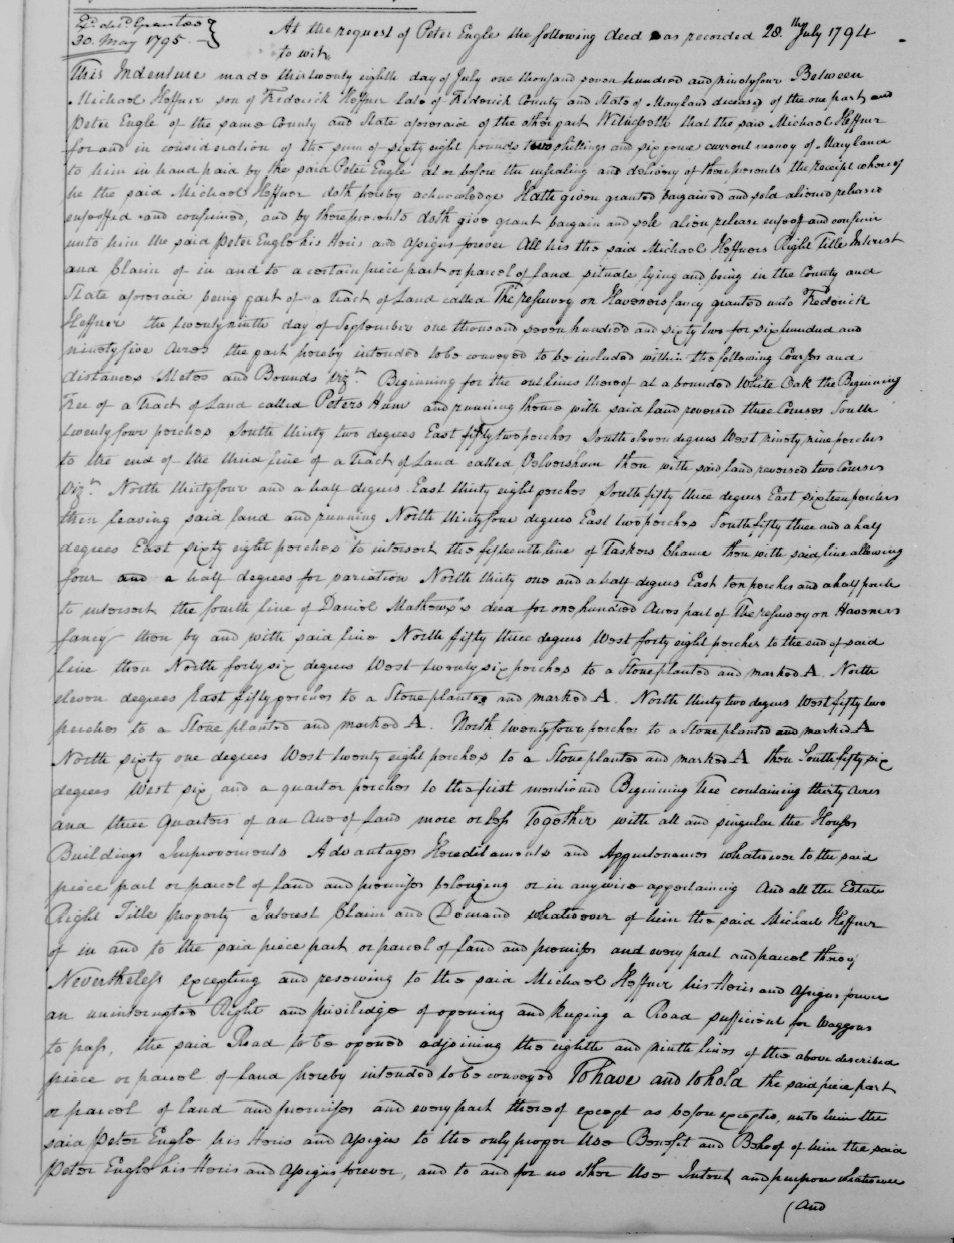 Ex.d & del.d Grantee
30. May 1795.
At the request of Peter Engle the following deed was recorded 28.th July 1794
to wit,
This Indenture made this twenty eighth day of July one thousand seven hundred and ninety four Between
Michael Heffner son of Frederick Heffner late of Frederick County and State of Maryland deceased of the one part and
Peter Engle of the same County and State aforesaid of the other part Witnesseth that the said Michael Heffner
for and in consideration of the sum of sixty eight pounds two shillings and six pence current money of Maryland
to him in hand paid by the said Peter Engle at or before the ensealing and delivery of these presents the receipt whereof
he the said Michael Heffner doth hereby acknowledge Hath given granted bargained and sold aliened released
enfeoffed and confirmed, and by these presents doth give grant bargain and sell alien release enfeoff and confirm
unto him the said Peter Engle his Heirs and Assigns forever All his the said Michael Heffners Right Title Interest
and Claim of in and to a certain piece part or parcel of Land situate lying and being in the County and
State aforesaid being part of a Tract of Land called The resurvey on Haveners fancy granted unto Frederick
Heffner the twenty ninth day of September one thousand seven hundred and sixty two for six hundred and
ninety five Acres the part hereby intended to be conveyed to be included within the following Courses and
distances Metes and Bounds Viz.t Beginning for the out lines thereof at a bounded White Oak the Beginning
Tree of a Tract of Land called Peters and running thence with said land reversed three Courses South
twenty four perches South thirty two degrees East fifty two perches South eleven degrees West ninety nine perches
to the end of the third line of a Tract of Land called Oulversham then with said land, reversed two Courses
Viz.t North thirty four and a half degrees East thirty eight perches South fifty three degrees East sixteen perches
then leaving said land and running North thirty four degrees East two perches South fifty three and a half
degrees East sixty eight perches to intersect the fifteenth line of Taskers Chance then with said line allowing
four and a half degrees for variation North thirty one and a half degrees East ten perches and a half perch
to intersect the fourth line of Daniel Mathews's deed for one hundred Acres part of The resurvey on Haveners
fancy then by and with said line North fifty three degrees West forty eight perches to the end of said
line then North forty six degrees West twenty six perches to a Stone planted and marked A. North
eleven degrees East fifty perches to a Stone planted and marked A. North thirty two degrees West fifty two
perches to a Stone planted and marked A. North twenty four perches to a Stone planted and marked A
North sixty one degrees West twenty eight perches to a Stone planted and marked A then South fifty six
degrees West six and a quarter perches to the first mentioned Beginning Tree containing thirty Acres
and three Quarters of an Acre of Land more or less Together with all and singular the Houses
Buildings Improvements Advantages Hereditaments and Appurtenances whatsoever to the said
piece part or parcel of land and premises belonging or in anywise appertaining And all the Estate
Right Title property Interest Claim and Demand whatsoever of him the said Michael Heffner
of in and to the said piece part or parcel of land and premises and every part and parcel thereof
Nevertheless excepting and reserving to the said Michael Heffner his Heirs and Assigns forever
an uninterrupted Right and priviledge of opening and keeping a Road sufficient for Waggons
to pass, the said Road to be opened adjoining the eighth and ninth lines of the above described
piece or parcel of land hereby intended to be conveyed To have and to hold the said piece part
or parcel of land and premises and every part thereof except as before excepted, unto him the
said Peter Engle his Heirs and Assigns to the only proper Use Benefit and Behoof of him the said
Peter Engle his Heirs and Assigns forever, and to and for no other Use Intent and purpose whatsoever
(And